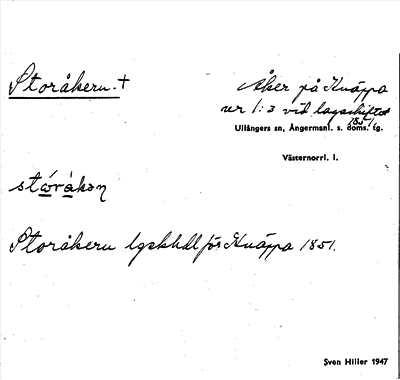 Storåkern. †
Åker på Knäppa
nr 1:3 vid lagaskiftet
1851
Ullångers sn, Ångermanl. s. doms. fg.
Västernorrl. l.
stóràkən
Storåkern lgskhdl för Knäppa 1851.
Sven Hiller 1947